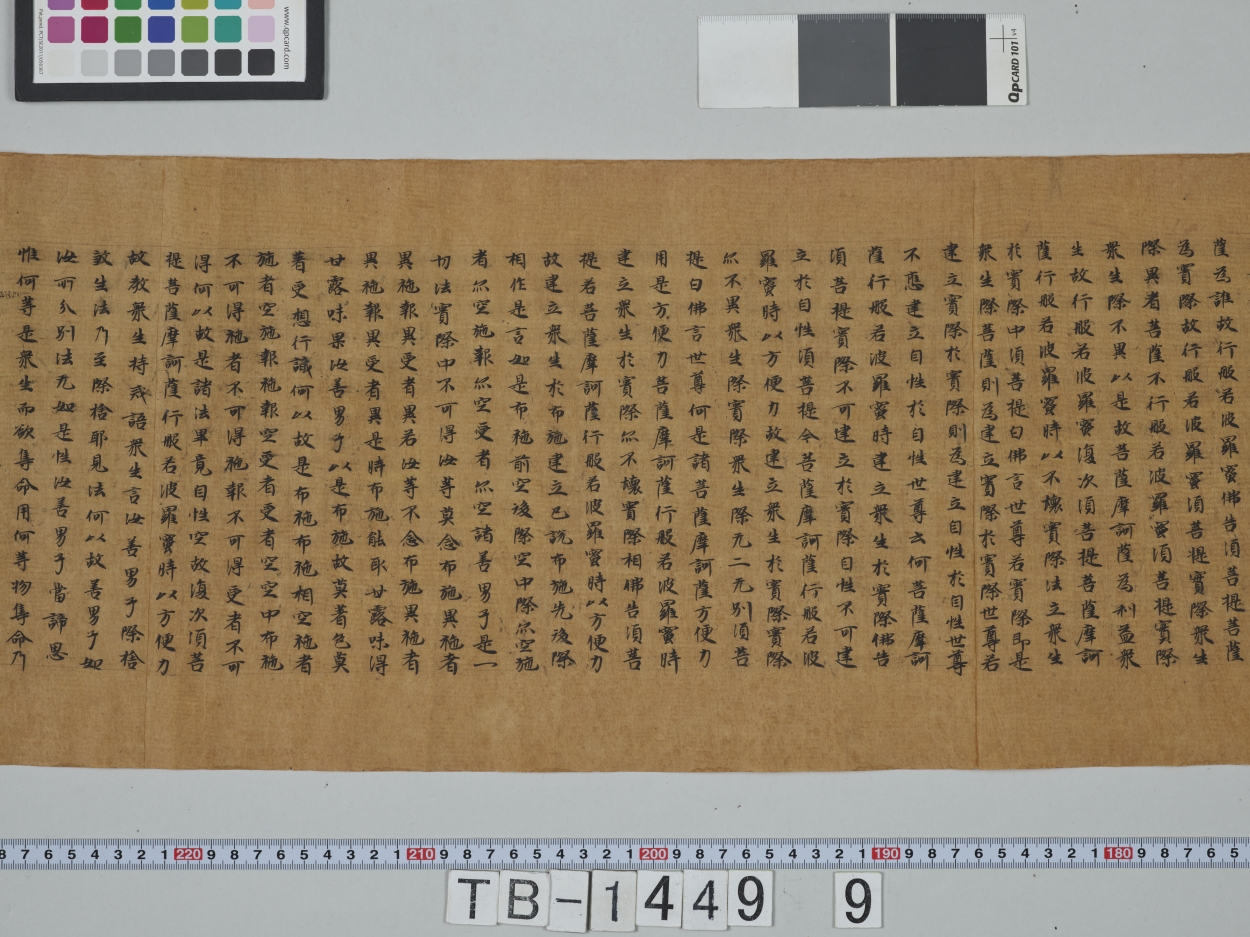 薩為誰故行般若波羅蜜佛告須菩提菩薩
為實際故行般若波羅蜜須菩提實際衆生
際異者菩薩不行般若波羅蜜須菩提實際
衆生際不異以是故菩薩摩訶薩為利益衆
生故行般若波羅蜜復次須菩提菩薩摩訶
薩行般若波羅蜜時以不壞實際法立衆生
於實際中須菩提白佛言世尊若實際即是
衆生際菩薩則為建立實際於實際世尊若
建立實際於實際則為建立自性於自性世尊
不應建立自性於自性世尊云何菩薩摩訶
薩行般若波羅蜜時建立衆生於實際佛告
須菩提實際不可建立於實際自性不可建
立於自性須菩提今菩薩摩訶薩行般若波
羅蜜時以方便力故建立衆生於實際實際
尒不異衆生際實際衆生際无二无別須菩
提白佛言世尊何是諸菩薩摩訶薩方便力
用是方便力菩薩摩訶薩行般若波羅蜜時
建立衆生於實際尒不壞實際相佛告須菩
提若菩薩摩訶薩行般若波羅蜜時以方便力
故建立衆生於布施建立已說布施先後際
相作是言如是布施前空後際空中際尒空施
者尒空施報尒空受者尒空諸善男子是一
切法實際中不可得汝等莫念布施異施者
異施報異受者異若汝等不念布施異施者
異施報異受者異是時布施能取甘露味得
甘露味果汝善男子以是布施故莫著色莫
著受想行識何以故是布施布施相空施者
施者空施報施報空受者受者空空中布施
不可得施者不可得施報不可得受者不可
得何以故是諸法畢竟自性空故復次須菩
提菩薩摩訶薩行般若波羅蜜時以方便力
故教衆生持戒語衆生言汝善男子際捨
敦生法乃至際捨耶見法何以故善男子如
汝所分別法无如是性汝善男子當諦思
惟何等是衆生而欲集命用何等物集命乃
www.qpcard.com
QPCARD 101 v4
8 7 6 5 4 3 2 1 220 9 8 7 6 5 4 3 2 1 210 9 8 7 6 5 4 3 2 1 200 9 8 7 6 5 4 3 2 1 190 9 8 7 6 5 4 3 2 1 180 9 8 7 6 5
TB-1449 9